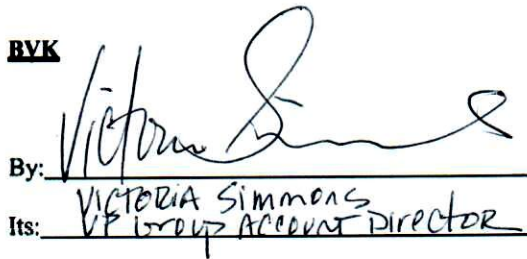 BVK
By: Victoria Simmons
VICTORIA Simmons
Its: VP Group Account Director